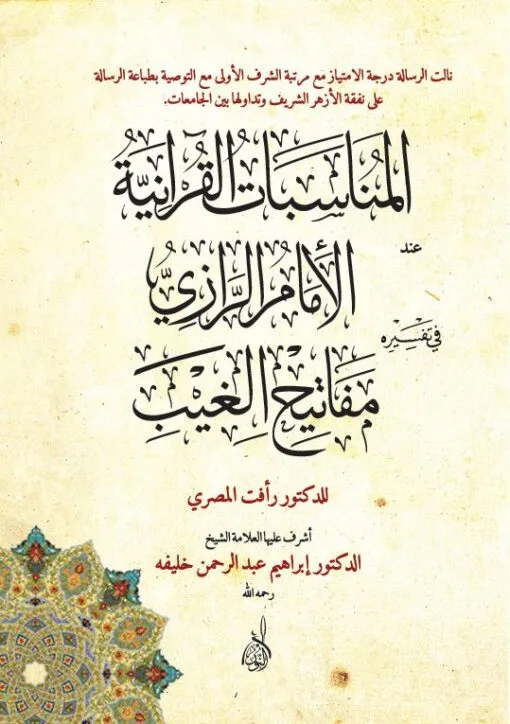 نالت الرسالة درجة الامتياز مع مرتبة الشرف الأولى مع التوصية بطباعة الرسالة
على نفقة الأزهر الشريف وتداولها بين الجامعات.
المُنَاسَبَاتُ القُرآنِيَّةُ
عند
الإِمَامِ الرَّازِيِّ
في تَفْسِيرِه
مَفَاتِيحِ الغَيْبِ
للدكتور رأفت المصري
أشرف عليها العلامة الشيخ
الدكتور إبراهيم عبد الرحمن خليفه
رحمه الله